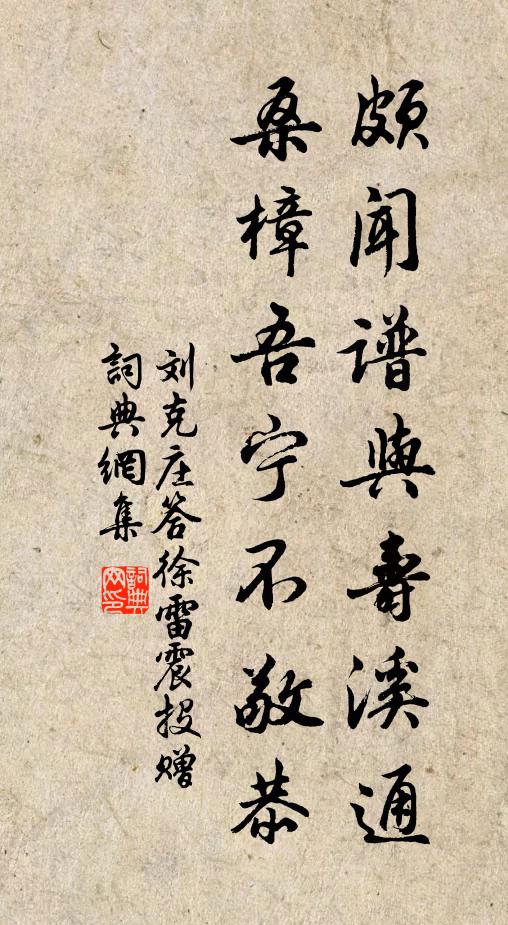 颇闻谱与寿溪通
桑樟吾宁不敬恭
刘克庄答徐雷震投赠
詞典網集
詞典网印